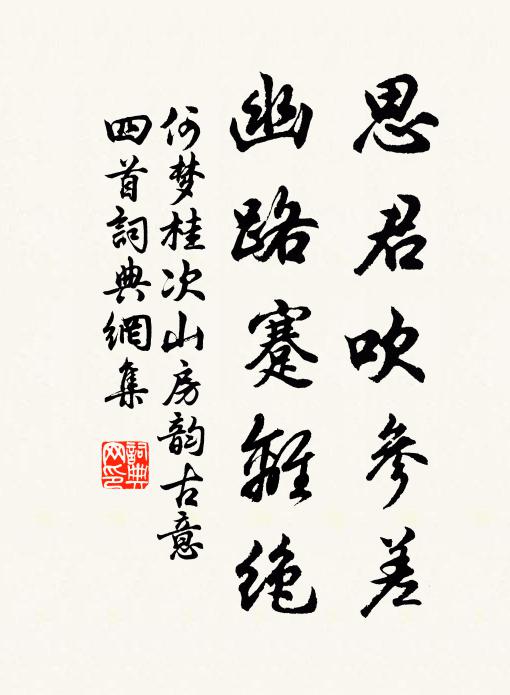 思君吹參差
幽路蹇離絶
何梦桂次山房韵古意
四首詞典網集
詞典
网印